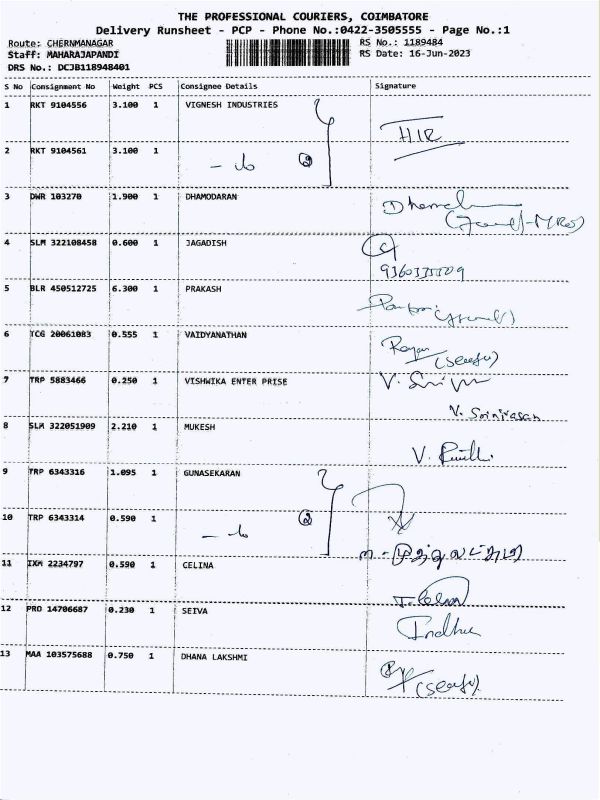 THE PROFESSIONAL COURIERS, COIMBATORE
Delivery Runsheet - PCP - Phone No.:0422-3505555 - Page No.:1
Route: CHERNMANAGAR RS No.: 1189484
Staff: MAHARAJAPANDI RS Date: 16-Jun-2023
DRS No.: DCJB118948401
S No Consignment No Weight PCS Consignee Details Signature
1 RKT 9104556 3.100 1 VIGNESH INDUSTRIES
2 RKT 9104561 3.100 1
3 DWR 103270 1.900 1 DHAMODARAN
4 SLM 322108458 0.600 1 JAGADISH
5 BLR 450512725 6.300 1 PRAKASH
6 TCG 20061083 0.555 1 VAIDYANATHAN
7 TRP 5883466 0.250 1 VISHWIKA ENTER PRISE
V. Srinivasan
8 SLM 322051909 2.210 1 MUKESH
9 TRP 6343316 1.095 1 GUNASEKARAN
10 TRP 6343314 0.590 1
11 IXM 2234797 0.590 1 CELINA
12 PRO 14706687 0.230 1 SEIVA
Indhu
13 MAA 103575688 0.750 1 DHANA LAKSHMI